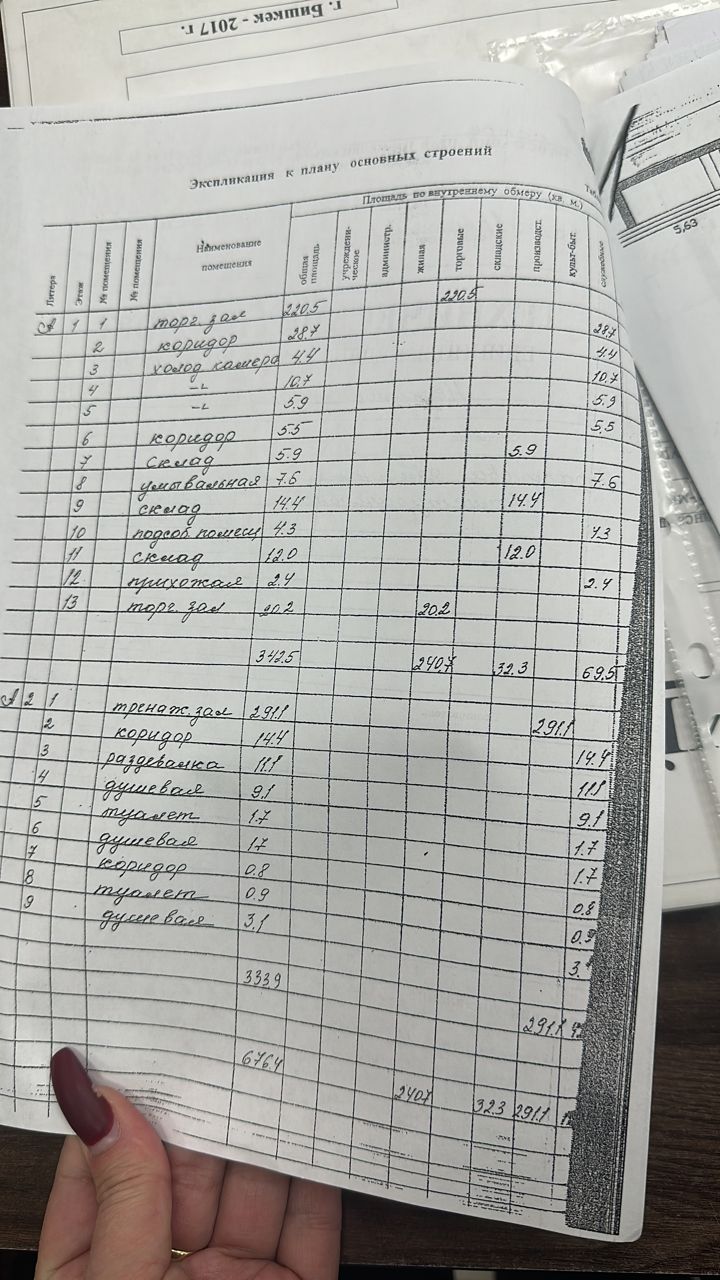 г. Бишкек - 2017 г.
Экспликация к плану основных строений
Площадь по внутреннему обмеру (кв. м.)
Литера Этаж № помещения № помещения Наименование помещения общая площадь учрежденческое администр. жилая торговые складские производст. культ-быт. служебное
А 1 1 торг. зал 220.5 220.5
2 коридор 28.7 28.7
3 холод камера 4.4 4.4
4 -"- 10.7 10.7
5 -"- 5.9 5.9
6 коридор 5.5 5.5
7 склад 5.9 5.9
8 умывальная 7.6 7.6
9 склад 14.4 14.4
10 подсоб. помещ 4.3 4.3
11 склад 12.0 12.0
12 прихожая 2.4 2.4
13 торг. зал 20.2 20.2
342.5 240.7 32.3 69.5
А 2 1 тренаж. зал 291.1 291.1
2 коридор 14.4 14.4
3 раздевалка 11.1 11.1
4 душевая 9.1 9.1
5 туалет 1.7 1.7
6 душевая 1.7 1.7
7 коридор 0.8 0.8
8 туалет 0.9 0.9
9 душевая 3.1 3.1
333.9 291.1
676.4 240.7 32.3 291.1
5,63